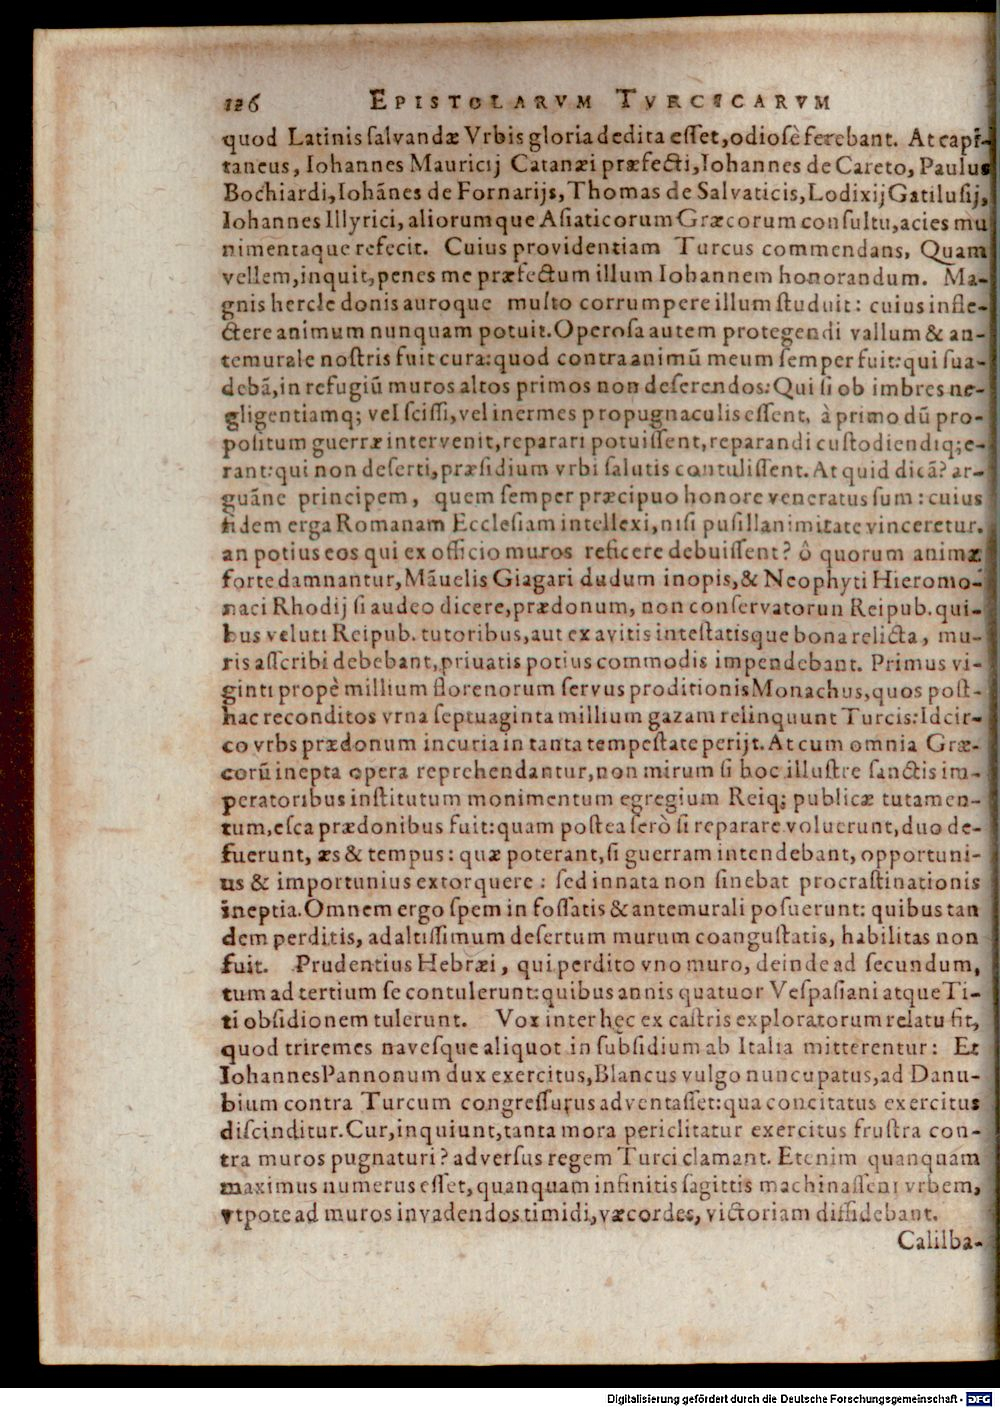 126 EPISTOLARVM TVRCICARVM
quod Latinis ſalvandæ Vrbis gloria dedita eſſet, odioſè ferebant. At capi-
taneus, Iohannes Mauricij Catanæi præfecti, Iohannes de Careto, Paulus
Bochiardi, Iohānes de Fornarijs, Thomas de Salvaticis, Lodixij Gatiluſij,
Iohannes Illyrici, aliorumque Aſiaticorum Græcorum conſultu, acies mu
nimentaque refecit. Cuius providentiam Turcus commendans, Quam
vellem, inquit, penes me præfectum illum Iohannem honorandum. Ma-
gnis hercle donis auroque multo corrumpere illum ſtuduit: cuius infle-
ctere animum nunquam potuit. Operoſa autem protegendi vallum & an-
temurale noſtris fuit cura: quod contra animū meum ſemper fuit: qui ſua-
debā, in refugiū muros altos primos non deſerendos: Qui ſi ob imbres ne-
gligentiamq; vel ſciſſi, vel inermes propugnaculis eſſent, à primo dū pro-
poſitum guerræ intervenit, reparari potuiſſent, reparandi cuſtodiendiq; e-
rant: qui non deſerti, præſidium vrbi ſalutis contuliſſent. At quid dicā? ar-
guāne principem, quem ſemper præcipuo honore veneratus ſum: cuius
fidem erga Romanam Eccleſiam intellexi, niſi puſillanimitate vinceretur.
an potius eos qui ex officio muros reficere debuiſſent? ô quorum animæ
forte damnantur, Māuelis Giagari dudum inopis, & Neophyti Hieromo-
naci Rhodij ſi audeo dicere, prædonum, non conſervatorun Reipub. qui-
bus veluti Reipub. tutoribus, aut ex avitis inteſtatisque bona relicta, mu-
ris aſſcribi debebant, priuatis potius commodis impendebant. Primus vi-
ginti propè millium florenorum ſervus proditionis Monachus, quos poſt-
hac reconditos vrna ſeptuaginta millium gazam relinquunt Turcis: Idcir-
co vrbs prædonum incuria in tanta tempeſtate perijt. At cum omnia Græ-
corū inepta opera reprehendantur, non mirum ſi hoc illuſtre ſanctis im-
peratoribus inſtitutum monimentum egregium Reiq; publicæ tutamen-
tum, eſca prædonibus fuit: quam poſtea ſerò ſi reparare voluerunt, duo de-
fuerunt, æs & tempus: quæ poterant, ſi guerram intendebant, opportuni-
us & importunius extorquere: ſed innata non ſinebat procraſtinationis
ineptia. Omnem ergo ſpem in foſſatis & antemurali poſuerunt: quibus tan
dem perditis, ad altiſſimum deſertum murum coanguſtatis, habilitas non
fuit. Prudentius Hebræi, qui perdito vno muro, deinde ad ſecundum,
tum ad tertium ſe contulerunt: quibus annis quatuor Veſpaſiani atque Ti-
ti obſidionem tulerunt. Vox inter hęc ex caſtris exploratorum relatu fit,
quod triremes naveſque aliquot in ſubſidium ab Italia mitterentur: Et
Iohannes Pannonum dux exercitus, Blancus vulgo nuncupatus, ad Danu-
bium contra Turcum congreſſurus adventaſſet: qua concitatus exercitus
diſcinditur. Cur, inquiunt, tanta mora periclitatur exercitus fruſtra con-
tra muros pugnaturi? adverſus regem Turci clamant. Etenim quanquam
maximus numerus eſſet, quanquam infinitis ſagittis machinaſſent vrbem,
vtpote ad muros invadendos timidi, væcordes, victoriam diffidebant.
Calilba-
Digitalisierung gefördert durch die Deutsche Forschungsgemeinschaft - DFG